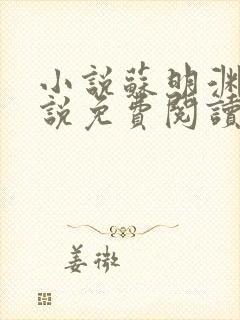 小說蘇明淵
說免費閱讀
姜微